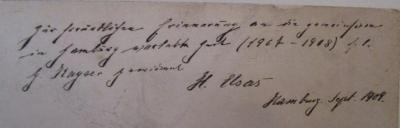 Zur freundlichen Erinnerung an die gemeinsam
in Hamburg verlebte Zeit (1907 – 1908)
H. Kayser gewidmet
H. Elsas
Hamburg Sept. 1908.